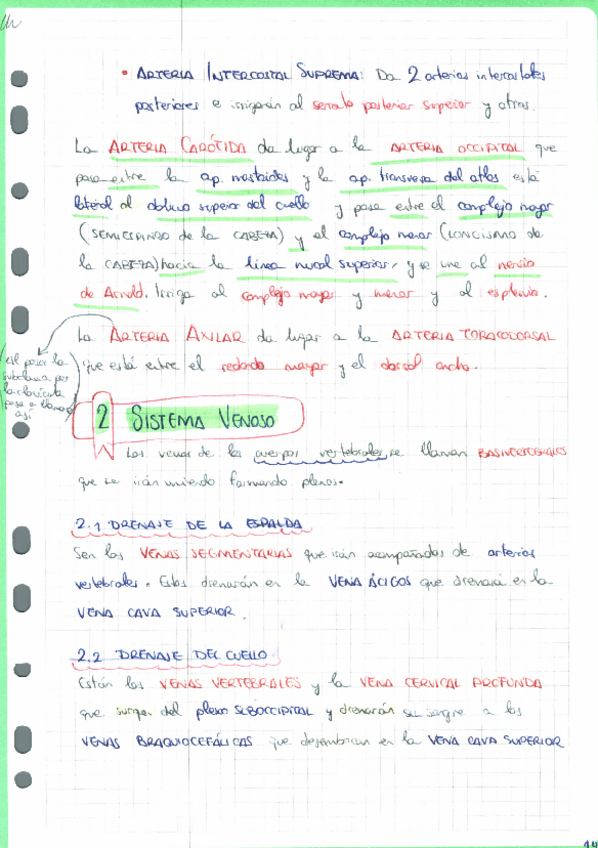 • ARTERIA INTERCOSTAL SUPREMA: Da 2 arterias intercostales
posteriores e irrigarán al serrato posterior superior y otros.
La ARTERIA CARÓTIDA da lugar a la ARTERIA OCCIPITAL que
pasa entre la ap. mastoides y la ap. transversa del atlas está
lateral al oblicuo superior del cuello y pasa entre el complejo mayor
(SEMIESPINOSO de la CABEZA) y el complejo menor (LONGISIMO de
la CABEZA) hacia la línea nucal superior, y se une al nervio
de Arnold. Irriga al complejo mayor y menor y al esplenio.
La ARTERIA AXILAR da lugar a la ARTERIA TORACODORSAL
que está entre el redondo mayor y el dorsal ancho.
Al pasar la
subclavia por
la clavícula
pasa a llamarse
así
2 SISTEMA VENOSO
Las venas de los cuerpos vertebrales se llaman BASIVERTEBRALES
que se irán uniendo formando plexos.
2.1 DRENAJE DE LA ESPALDA
Son las VENAS SEGMENTARIAS que irán acompañadas de arterias
vertebrales. Estas drenarán en la VENA ÁCIGOS que drenará en la
VENA CAVA SUPERIOR.
2.2 DRENAJE DEL CUELLO
Están las VENAS VERTEBRALES y la VENA CERVICAL PROFUNDA
que surgen del plexo SUBOCCIPITAL y drenarán su sangre a las
VENAS BRAQUIOCEFÁLICAS que desembocan en la VENA CAVA SUPERIOR